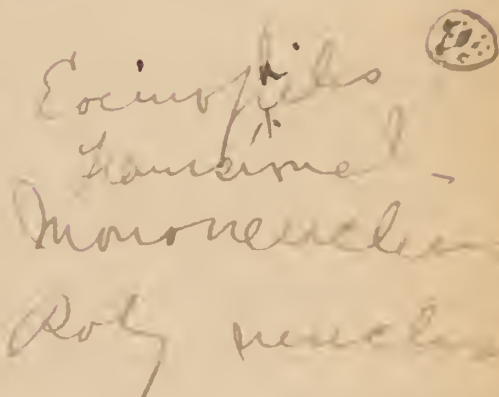 Eocinophiles
Transional -
Mononeuclea
Poly neuclea